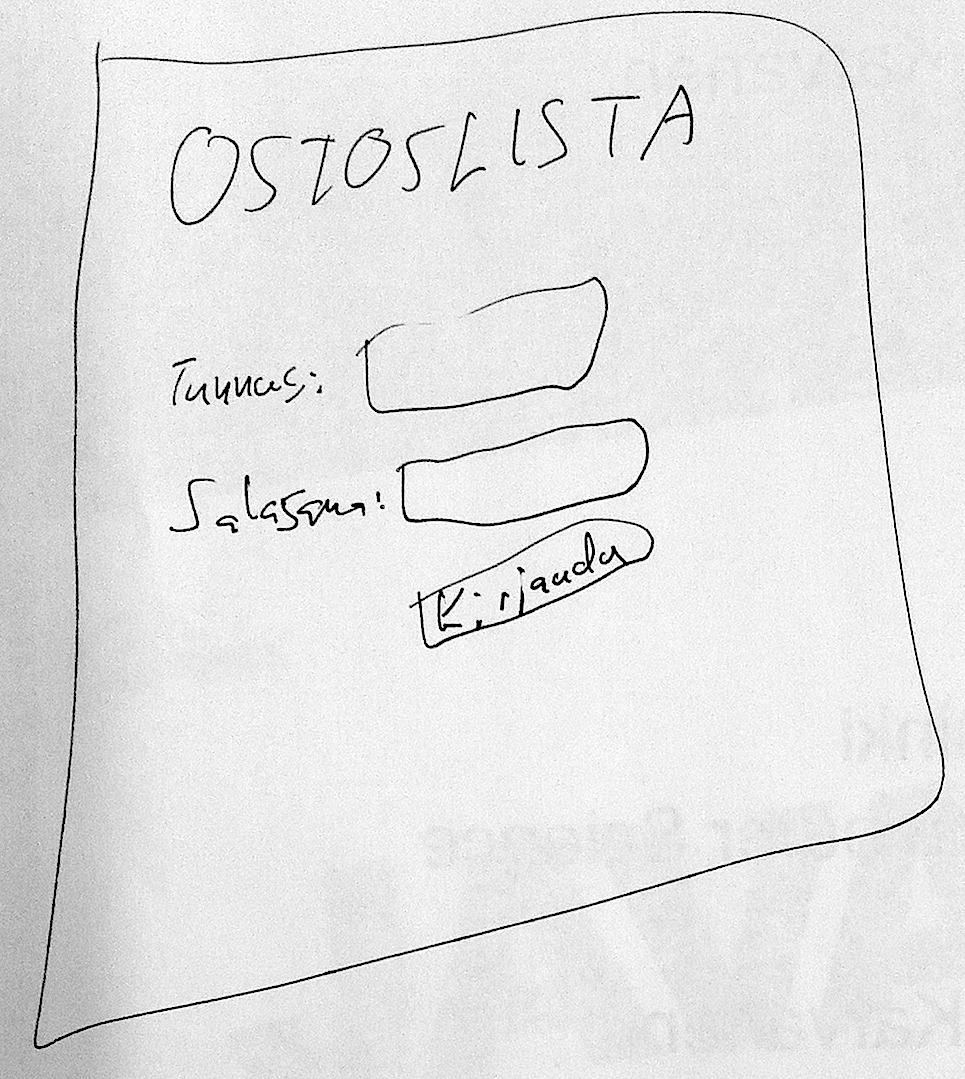 OSTOSLISTA
Tunnus:
Salasana:
Kirjaudu